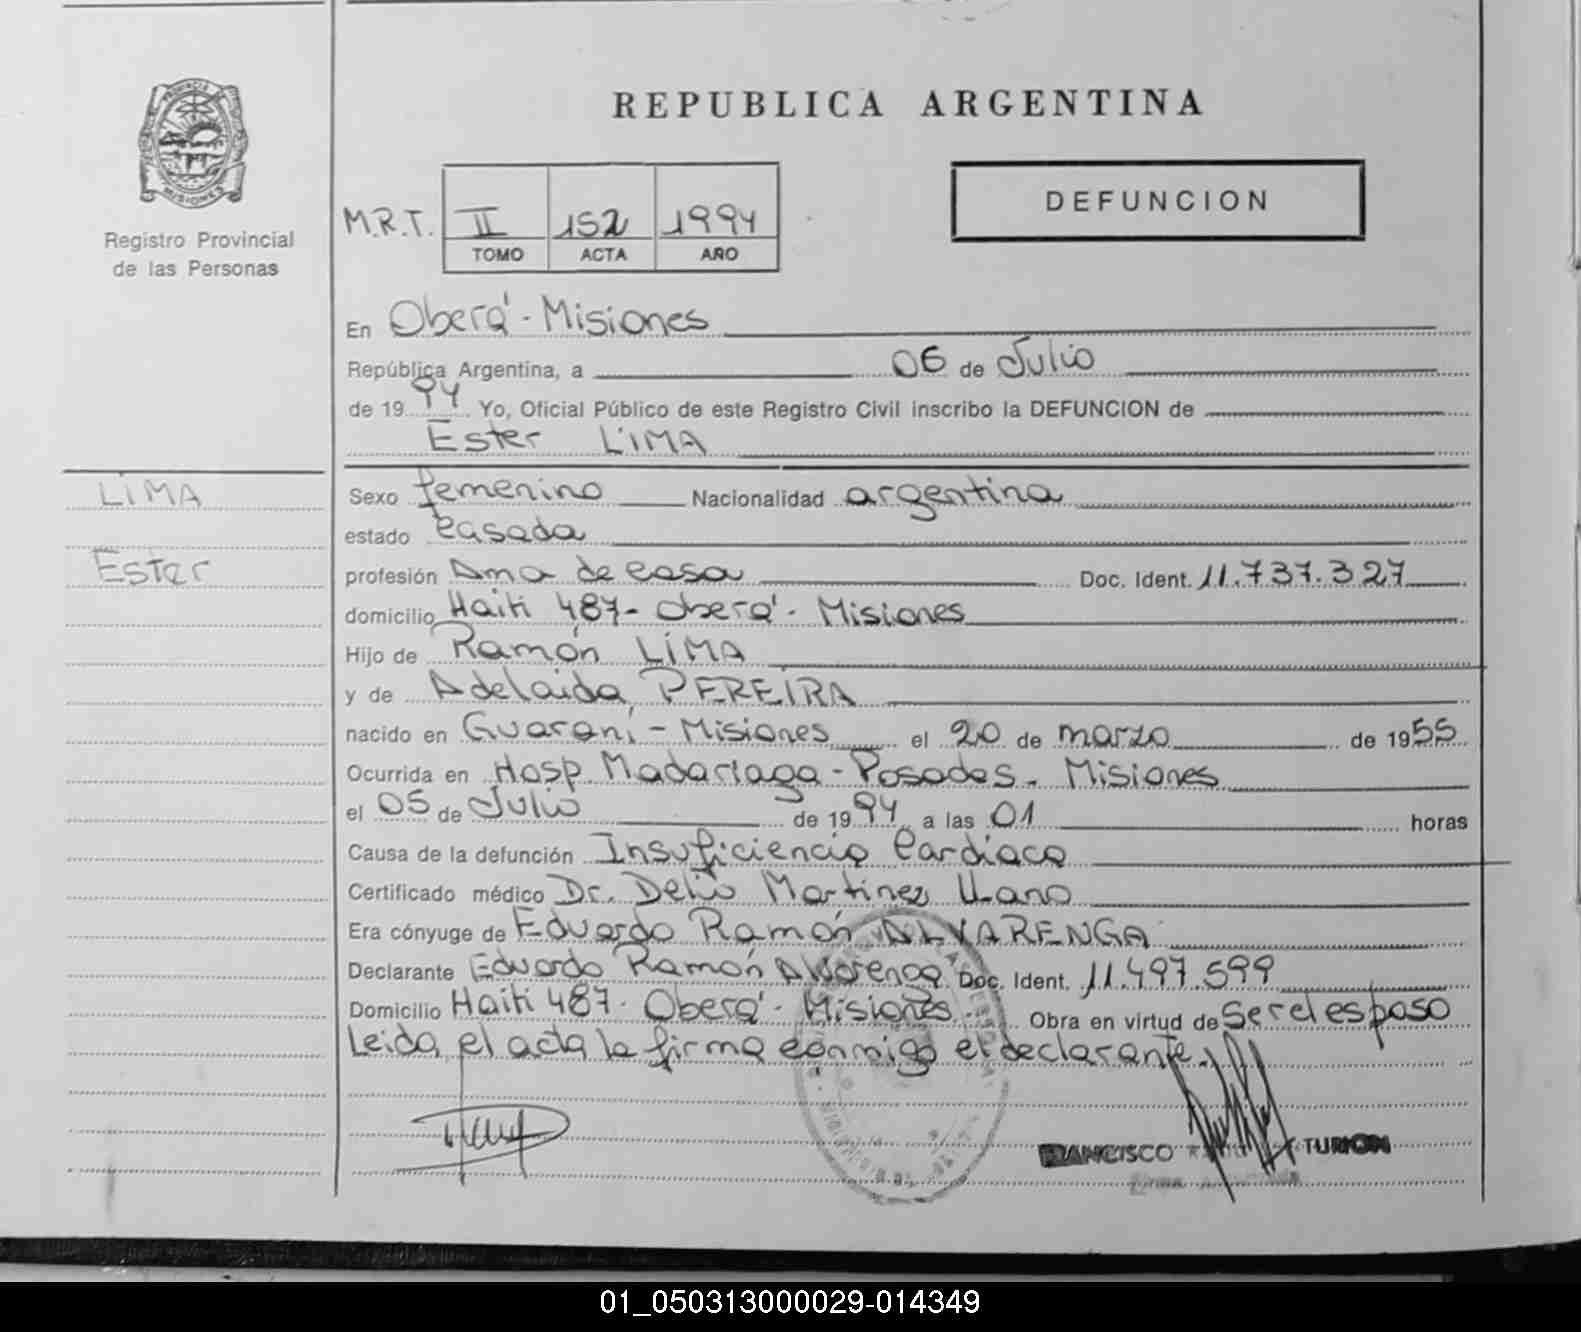 PROVINCIA
MISIONES
Registro Provincial
de las Personas
REPUBLICA ARGENTINA
DEFUNCION
M.R.T. II 152 1994
TOMO ACTA AÑO
En Oberá - Misiones
República Argentina, a 06 de Julio
de 1994 Yo, Oficial Público de este Registro Civil inscribo la DEFUNCION de
Ester LIMA
LIMA
Ester
Sexo femenino Nacionalidad argentina
estado Casada
profesión Ama de casa Doc. Ident. 11.737.327
domicilio Haiti 487 - Oberá - Misiones
Hijo de Ramón LIMA
y de Adelaida PEREIRA
nacido en Guaraní - Misiones el 20 de marzo de 1955
Ocurrida en Hosp. Madariaga - Posadas - Misiones
el 05 de Julio de 1994 a las 01 horas
Causa de la defunción Insuficiencia Cardiaca
Certificado médico Dr. Delio Martinez Llano
Era cónyuge de Eduardo Ramón ALVARENGA
Declarante Eduardo Ramón Alvarenga Doc. Ident. 11.497.599
Domicilio Haiti 487 - Oberá - Misiones Obra en virtud de Ser el esposo
Leida el acta la firma conmigo el declarante.
FRANCISCO TURION
01_050313000029-014349